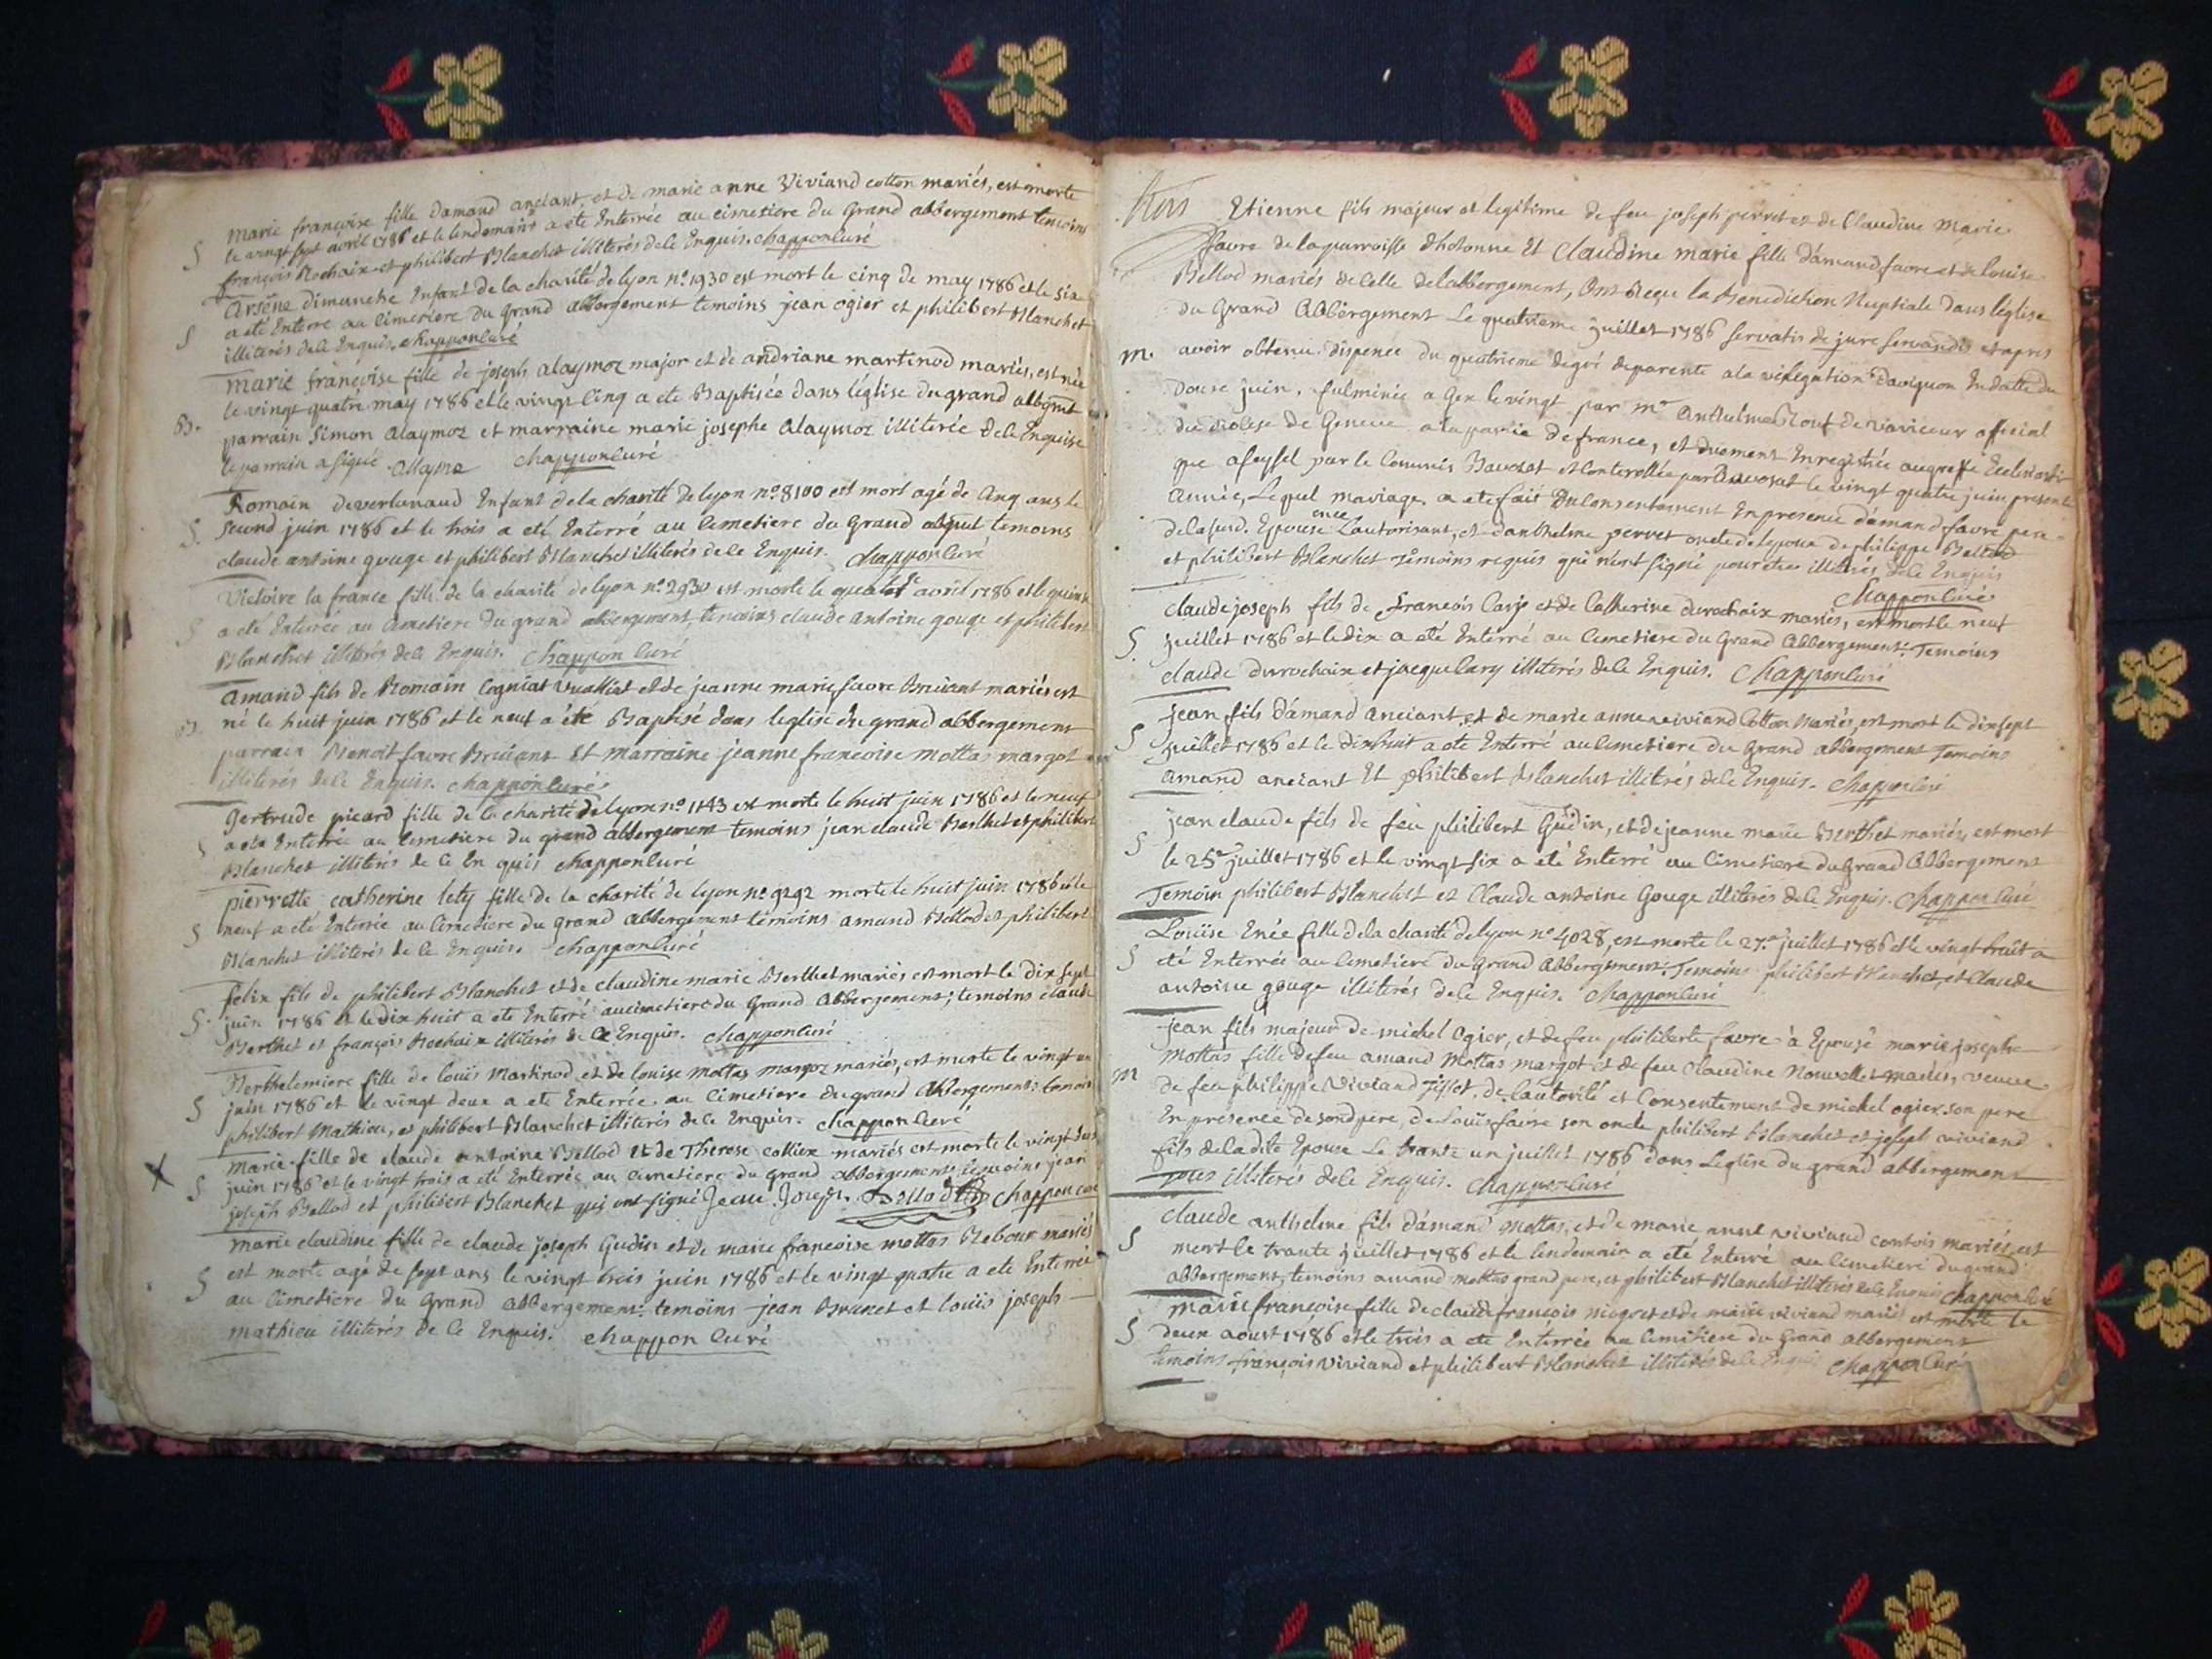 marie françoise fille damand anciant, et de marie anne Viviand cotton mariés, est morte
S le vingt sept avril 1786 et le lendemain a ete Enterrée au cimetiere du Grand abbergement temoins
françois Rochaix et philibert Blanchet illiterés de le Enquis. chapponcuré
Arsêne dimanche Enfant de la charité de lyon n.º 1930 est mort le cinq de may 1786 et le six
S a eté Enterré au Cimetiere du Grand abbergement temoins jean ogier et philibert Blanchet
illiterés de le Enquis. chapponcuré
marie françoise fille de joseph alaymoz major et de andriane martinod mariés, est née
le vingt quatre may 1786 et le vingt cinq a ete Baptisée dans l'église du grand abbgmt
B. parrain Simon alaymoz et marraine marie josephe alaymoz illiterée de le Enquise
le parrain a signé chapponcuré
Romain Enfant de la charité de lyon n.º 8100 est mort agé de cinq ans le
S. second juin 1786 et le trois a eté Enterré au Cimetiere du Grand temoins
claude antoine gouge et philibert Blanchet illiterés de le Enquis. chapponcuré
Victoire la france fille de la charité de lyon n.º 2930 est morte le avril 1786 et le quinze
S a ete Enterrée au Cimetiere du grand abbergement temoins claude antoine gouge et philibert
Blanchet illiterés de le Enquis. chappon curé
amand fils de Romain Cogniat et de jeanne marie favre Brivant mariés est
B. né le huit juin 1786 et le neuf a été Baptisé dans l'eglise du grand abbergement
parrain Benoit favre Brivant et marraine jeanne françoise mottas margot
illiterés de le Enquis. chapponcuré
Gertrude picard fille de la charité de lyon n.º 1143 est morte le huit juin 1786 et le neuf
S a eté Enterrée au Cimetiere du grand abbergement temoins jean claude Berthet et philibert
Blanchet illiterés de le En quis chapponcuré
pierrette catherine lety fille de la charité de lyon n.º 9292 morte le huit juin 1786 et le
S neuf a eté Enterrée au Cimetiere du grand abbergement temoins amand Bellod et philibert
Blanchet illiterés de le Enquis. chapponcuré
felix fils de philibert Blanchet et de claudine marie Berthet mariés est mort le dix sept
S. juin 1786 et le dix huit a ete Enterré au cimetiere du Grand abbergement; temoins claude
Berthet et françois Rochaix illiterés de le Enquis. chapponcuré
Berthelemiere fille de louis Martinod et de louise mottas margoz mariés, est morte le vingt un
S juin 1786 et le vingt deux a eté Enterrée au Cimetiere du grand abbergement: temoins
philibert Mathieu, et philibert Blanchet illiterés de le Enquis. chapponcuré
X marie fille de claude antoine Bellod et de Therese collier mariés est morte le vingt deux
S juin 1786 et le vingt trois a eté Enterrée au Cimetiere du Grand abbergement temoins jean
joseph Bellod et philibert Blanchet qui ont signé Jean Joseph Bellod chapponcuré
marie claudine fille de claude joseph Gudin et de marie françoise mottas Rebour mariés
S est morte agé de sept ans le vingt trois juin 1786 et le vingt quatre a ete Enterrée
au Cimetiere du Grand abbergement: temoins jean Brunet et louis joseph
mathieu illiterés de le Enquis. chappon curé
Etienne fils majeur et legitime de feu joseph perret et de Claudine Marie
favre de la parroisse d'hotonne Et Claudine marie fille d'amand favre et de louise
Bellod mariés de celle de l'abbergement, ont Reçu la Benediction Nuptiale dans l'église
du Grand abbergement Le quatrieme juillet 1786 servatis de jure servandis et apres
m. avoir obtenu dispense du quatrieme degré de parenté a la vicelegation d'avignon En datte du
douze juin, fulminée a Gex le vingt par M.e Anthelme de official
du diocese de Geneve a la partie de france, et duement Enregistrée au greffe Ecclesiasti
que a seyssel par le Commis Bavozat et Controllée par Bavozat le vingt quatre juin presente
année, Lequel mariage a ete fait Du Consentement En presence d'amand favre pere
de la susd. Epouse l'autorisant, et d'anthelme perret oncle de l'epoux de philippe Bellod
et philibert Blanchet Temoins requis qui n'ont signé pour etre illiterés de le Enquis
chapponcuré
claude joseph fils de françois Cary et de Catherine durochaix mariés, est mort le neuf
S. juillet 1786 et le dix a eté Enterré au Cimetiere du Grand Abbergement: Temoins
claude durochaix et jacque Cary illiterés de le Enquis. chapponcuré
jean fils d'amand anciant et de marie anne viviand Cotton Mariés, est mort le dix sept
S juillet 1786 et le dix huit a ete Enterré au Cimetiere du Grand abbergement Temoins
amand anciant Et philibert Blanchet illiterés de le Enquis. chapponcuré
jean claude fils de feu philibert Gudin, et de jeanne marie Berthet mariés est mort
S le 25e juillet 1786 et le vingt six a été Enterré au Cimetiere du Grand Abbergement
Temoin philibert Blanchet et Claude antoine Gouge illiterés de le Enquis. chapponcuré
Louise Enée fille de la charité de lyon n.º 4028, est morte le 27.e juillet 1786 et le vingt huit a
S eté Enterrée au Cimetiere du Grand Abbergement: Temoins philibert Blanchet, et Claude
antoine gouge illiterés de le Enquis. chapponcuré
jean fils majeur de michel Ogier, et de feu philiberte favre a Epousé marie josephe
Mottas fille de feu amand Mottas margot et de feu Claudine Nouvellet mariés, veuve
m de feu philippe viviand de l'autorité et Consentement de michel ogier son pere
En presence de sond pere, de louis favre son oncle philibert Blanchet et joseph viviand
fils de la dite Epouse Le trante un juillet 1786 dans L'eglise du grand abbergement
tous illiterés de le Enquis. chapponcuré
claude anthelme fils d'amand mottas, et de marie anne viviand contois mariés, est
S mort le trante juillet 1786 et le lendemain a eté Enterré au Cimetiere du grand
abbergement, temoins amand mottas grand pere, et philibert Blanchet illiterés de le Enquis chapponcuré
marie françoise fille de claude françois et de marie viviand mariés est morte le
S deux aoust 1786 et le trois a ete Enterrée au Cimetiere du Grand abbergement
temoins françois viviand et philibert Blanchet illiterés de le Enquis chapponcuré